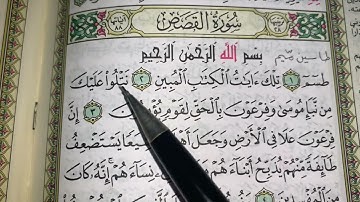 سُورَةُ القَصَصِ
بِسْمِ اللَّهِ الرَّحْمَٰنِ الرَّحِيمِ
طسٓمٓ ١ تِلْكَ ءَايَٰتُ ٱلْكِتَٰبِ ٱلْمُبِينِ ٢ نَتْلُوا۟ عَلَيْكَ
مِن نَّبَإِ مُوسَىٰ وَفِرْعَوْنَ بِٱلْحَقِّ لِقَوْمٍ يُؤْمِنُونَ ٣ إِنَّ
فِرْعَوْنَ عَلَا فِى ٱلْأَرْضِ وَجَعَلَ أَهْلَهَا شِيَعًا يَسْتَضْعِفُ
طَآئِفَةً مِّنْهُمْ يُذَبِّحُ أَبْنَآءَهُمْ نِسَآءَهُمْ إِنَّهُۥ كَانَ